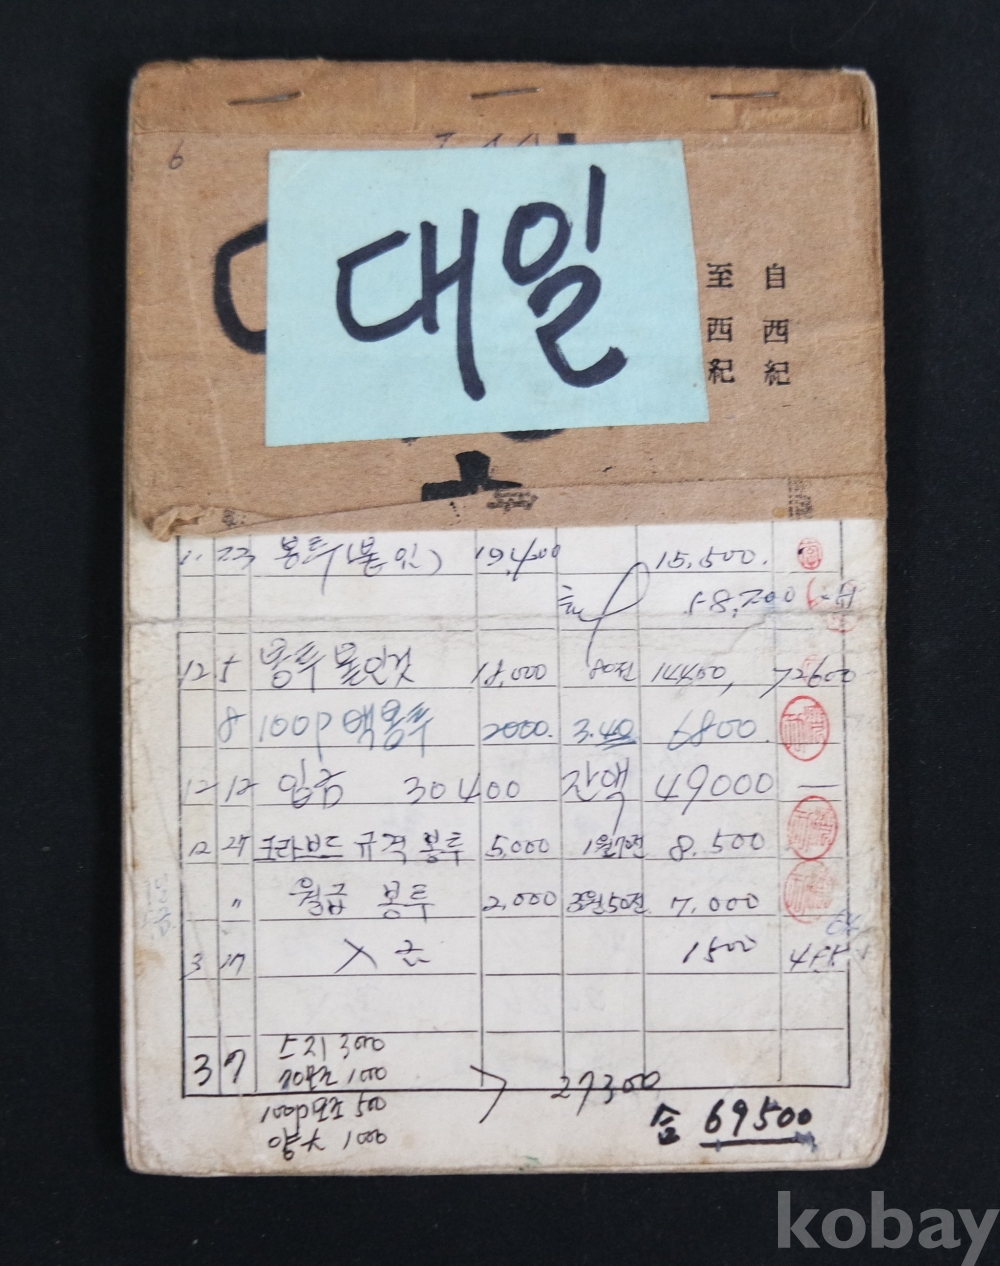 6
대일
自西紀
至西紀
11 23 봉투(풀인) 19,400 15,500.
58,200
12 5 봉투 풀인것 18,000 80전 14400, 72600
8 100p 백봉투 2000. 3.40 6800.
12 12 입금 30400 잔액 49000 —
12 27 크라브드 규격 봉투 5,000 1월70전 8.500
〃 월급 봉투 2,000 3월50전 7,000
3 27 入금 1500
3 7 스지 300
100
27300
500
1000
合 69500
kobay